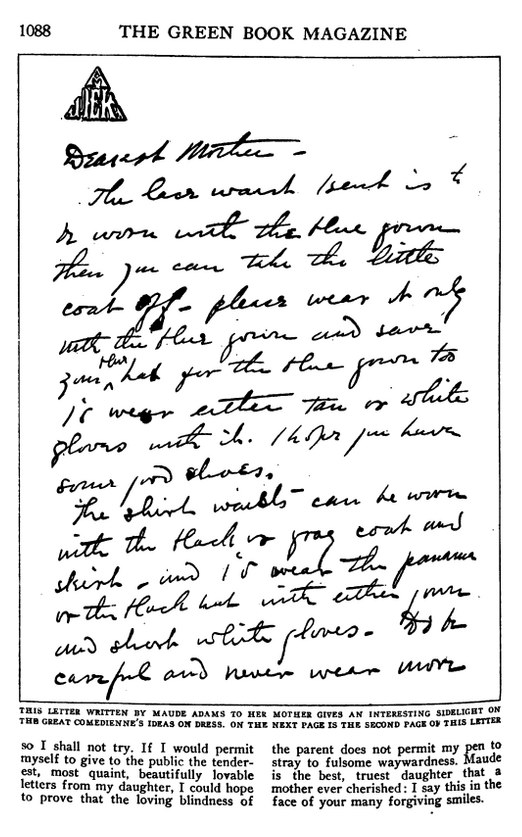 1088 THE GREEN BOOK MAGAZINE
Dearest Mother –
The lace waist I sent is t
be worn with the blue gown
then you can take the little
coat off – please wear it only
with the blue gown and save
your blue hat for the blue gown too
I'd wear either tan or white
gloves with it. I hope you have
some good shoes.
The shirt waists can be worn
with the black or gray coat and
skirt – and I'd wear the panama
or the black hat with either gown
and short white gloves – Do be
careful and never wear more
THIS LETTER WRITTEN BY MAUDE ADAMS TO HER MOTHER GIVES AN INTERESTING SIDELIGHT ON
THE GREAT COMEDIENNE'S IDEAS ON DRESS. ON THE NEXT PAGE IS THE SECOND PAGE OF THIS LETTER
so I shall not try. If I would permit
myself to give to the public the tender-
est, most quaint, beautifully lovable
letters from my daughter, I could hope
to prove that the loving blindness of
the parent does not permit my pen to
stray to fulsome waywardness. Maude
is the best, truest daughter that a
mother ever cherished: I say this in the
face of your many forgiving smiles.